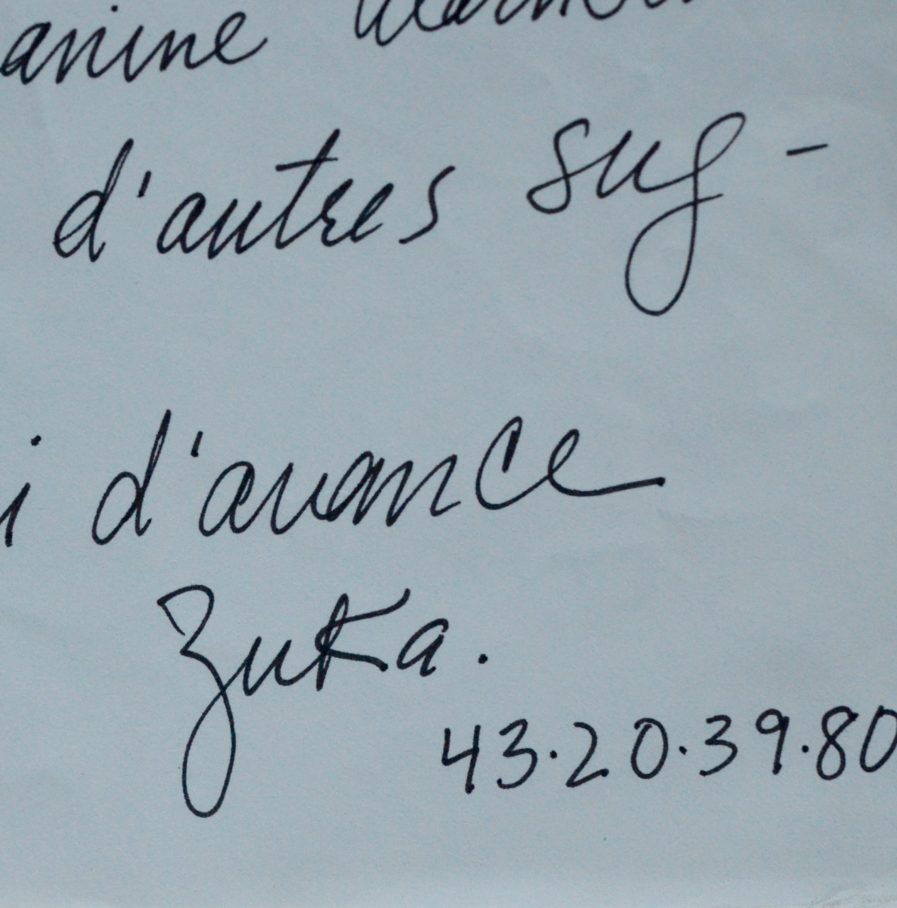 anine
d'autres sug-
i d'avance
Zuka.
43.20.39.80